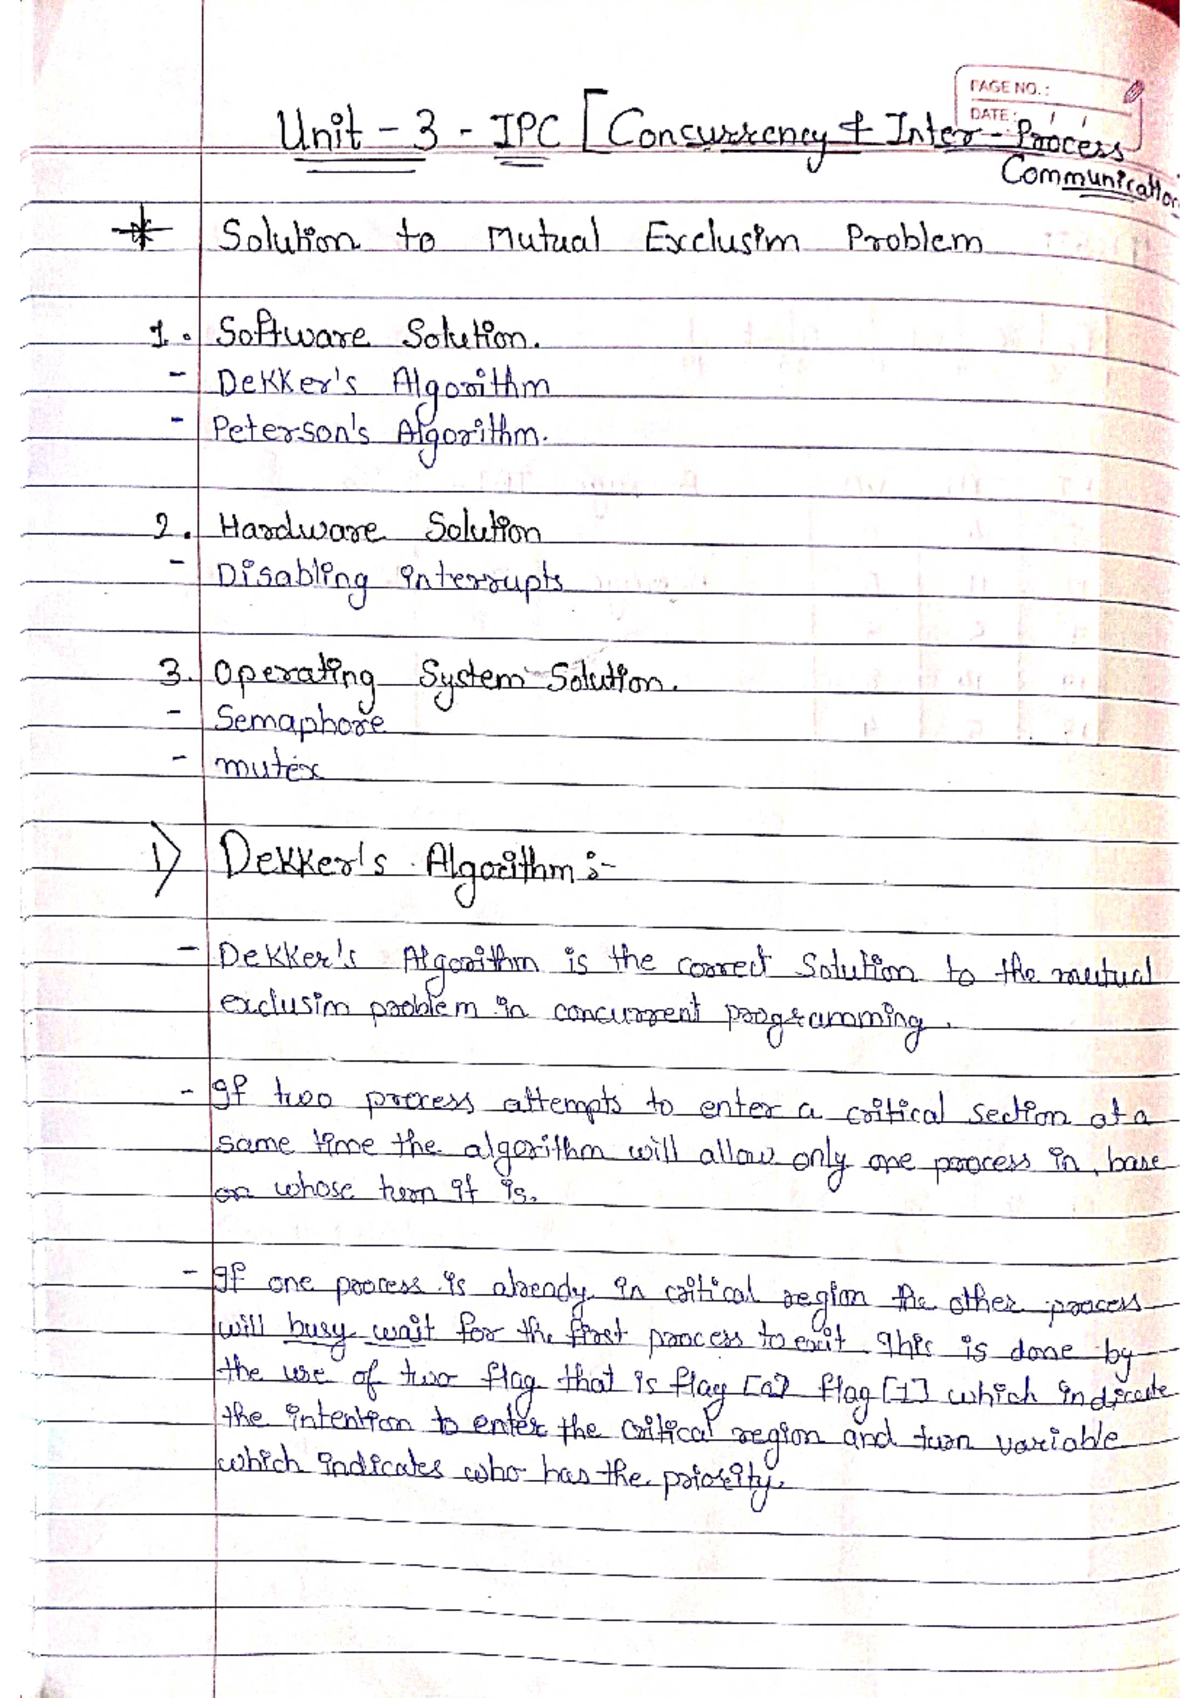 PAGE NO. :
DATE : / /
Unit - 3 - IPC [Concurrency & Inter - Process
Communication
* Solution to Mutual Exclusim Problem
1. Software Solution.
- Dekker's Algorithm
- Peterson's Algorithm.
2. Hardware Solution
- Disabling interrupts
3. Operating System Solution.
- Semaphore
- mutex
1) Dekker's Algorithm :-
- Dekker's Algorithm is the correct Solution to the mutual
exclusim problem in concurrent programming.
- If two process attempts to enter a critical section at a
same time the algorithm will allow only one process in, base
on whose turn it is.
- If one process is already in critical region the other process
will busy wait for the first process to exit. This is done by
the use of two flag that is flag [0] flag [1] which indicate
the intention to enter the critical region and turn variable
which indicates who has the priority.